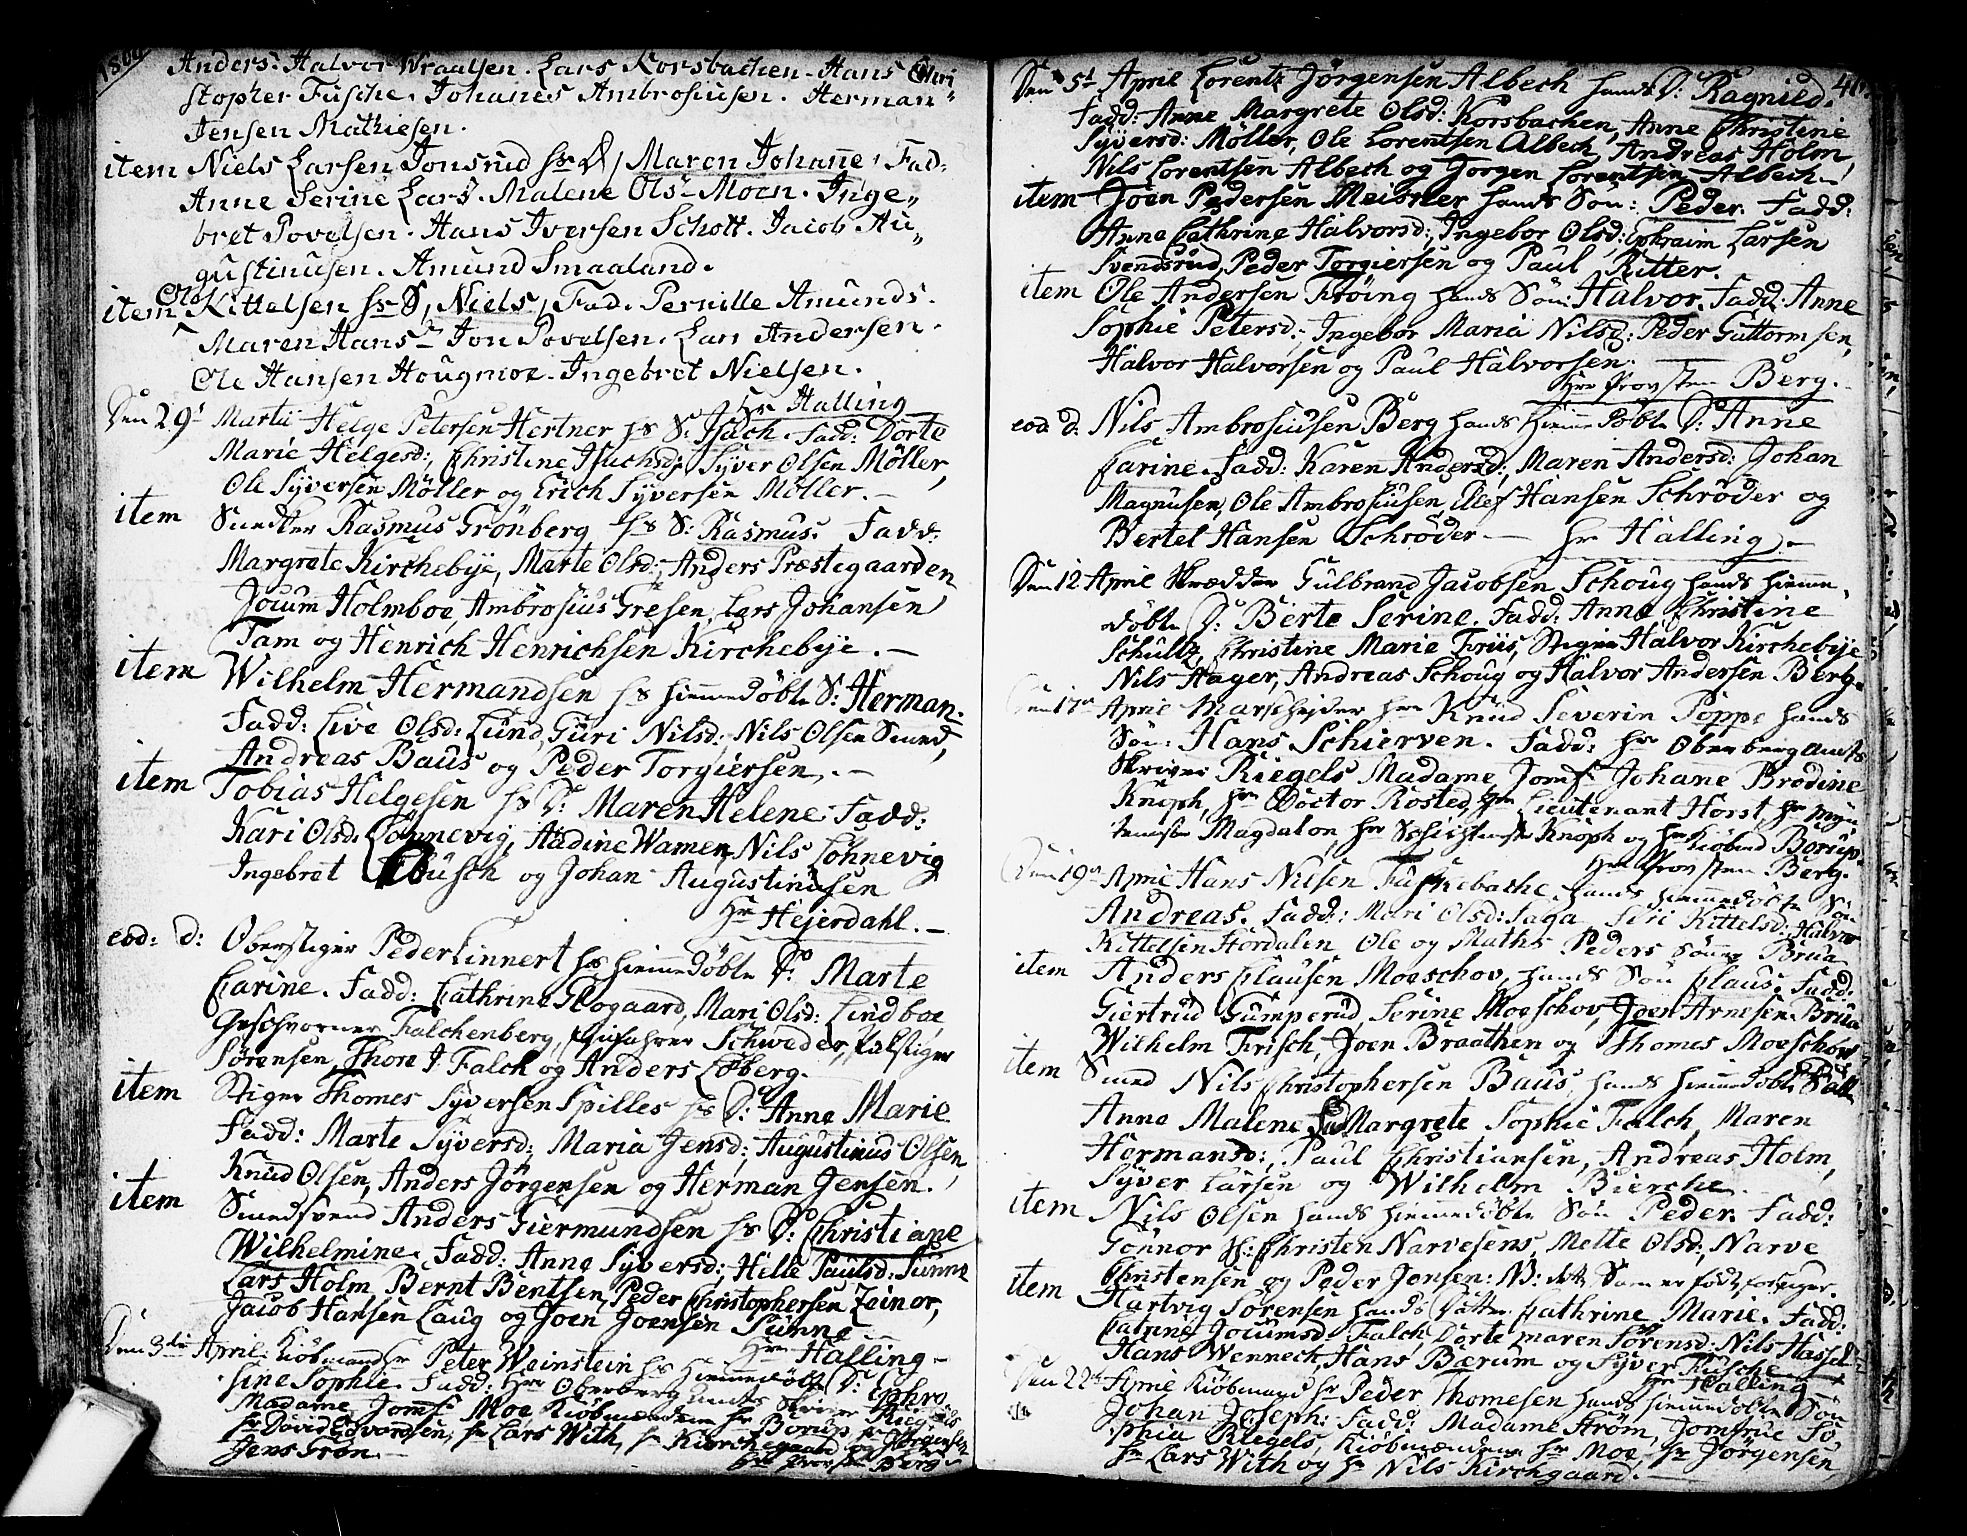 Anders. Halvor Wraalsen. Lars Korsbachen. Hans Chri
stopher Fusche. Johanes Ambrosiusen. Herman
Jensen Mathiesen.
item Niels Larsen Jonsrud hs D, Maren Johane, Fad.
Anne Serine Lars. Malene Ols. Moen. Inge„
bret Povelsen. Hans Iversen Schott. Jacob Au„
gustinusen. Amund Smaaland.
item Ole Kittelsen hs S, Niels, Fad. Pernille Amunds.
Maren Hans. Jon Povelsen. Lars Andersen.
Ole Hansen Hougmoe. Ingebret Nielsen.
Hr Halling
Den 29de Martii Helge Petersen Hertner hs S: Isach. Fadd: Dorte
Marie Helgesd:, Christine Isachsd: Syver Olsen Möller,
Ole Syversen Möller og Erich Syversen Möller.—
item Snedker Rasmus Grönberg hs S: Rasmus. Fadd:
Margrete Kirchebye, Marte Olsd:, Anders Præstegaarden
Jocum Holmboe, Ambrosius Gresen, Lars Johansen
Tam og Henrich Henrichsen Kirchebye.—
item Wilhelm Hermandsen hs hiemmedöbte S: Herman.
Fadd: Live Olsd: Lund, Guri Nilsd: Nils Olsen Smed,
Andreas Baus og Peder Torgiersen.—
item Tobias Helgesen hs D: Maren Helene. Fadd:
Kari Olsd: Lönnevig, Hadine Wamen, Nils Löhnevig
Ingebret Busch og Johan Augustinusen
Hr Hejerdahl.—
eod: d: Oberstiger Peder Linnert hs hiemmedöbte D: Marte
Carine. Fadd: Cathrine Plogaard, Mari Olsd: Lindboe,
Geschvorner Falchenberg, Schwader, Pukstiger
Sörensen, Thore J. Falch og Anders Löberg.
item Stiger Thomes Syversen Spilles hs D: Anne Marie
Fadd: Marte Syversd:, Maria Jensd:, Augustinus Olsen,
Knud Olsen, Anders Jörgensen og Herman Jensen.
item Smedsvend Anders Giermundsen hs D: Christiane
Wilhelmine. Fadd: Anne Syversd:, Helle Paulsd: Sunne
Lars Holm, Bernt Bentsen, Peder Christophersen Zeiner,
Jacob Hansen Laug og Joen Joensen Sunne
Hr Halling—
Den 3die April: Kiöbmand hr Peter Weinstein hs hiemmedöbte D: Ephro
sine Sophie. Fadd: Hr Oberberg Amts Skriver Riegels
Madame, Jomf: Moe, Kiöbmændene hr Borup, hr Jörgensen
hr David Edvardsen, hr Lars With, hr Kirchegaard og
Jens Grön.
Hr Provsten Berg.
40
Den 5t April Lorentz Jörgensen Albech hands D: Ragnild.
Fadd: Anne Margrete Olsd: Korsbachen, Anne Christine
Syversd: Möller, Ole Lorentsen Albech, Andreas Holm,
Nils Lorentsen Albech og Jörgen Lorentsen Albech.—
item Joen Pedersen Meistler hands Sön: Peder. Fadd:
Anne Cathrine Halvorsd:, Ingebor Olsd: Ephraim Larsen
Svendsrud, Peder Torgiersen og Paul Ritter.
item Ole Andersen Fröing hands Sön: Halvor. Fadd: Anne
Sophie Petersd:, Ingebor Maria Nilsd: Peder Guttormsen,
Halvor Halvorsen og Paul Halvorsen.
Hr Provsten Berg.
eod: d: Nils Ambrosiusen Berg hands hiemmedöbte D: Anne
Carine. Fadd: Karen Andersd:, Maren Andersd: Johan
Magnusen, Ole Ambrosiusen, Elef Hansen Schröder og
Bertel Hansen Schröder.— Hr Halling.—
Den 12 April Skrædder Gulbrand Jacobsen Schoug hands hiemme„
döbte D: Berte Serine. Fadd: Anne Christine
Schultz, Christine Marie Friis, Stiger Halvor Kirchebye
Nils Hager, Andreas Schoug og Halvor Andersen Berg.
Den 17de April Marschejder hr Knud Severin Poppe hands
Sön: Hans Schierven. Fadd: hr Oberbergamts
Skriver Riegels Madame, Jomf: Johane Brodine
Kniph, hr Doctor Rosted, hr Lieutenant Horst, hr Myn
temester Magdalon, hr Knoph og hr Kiöbmd Borup.
Hr Provsten Berg.
Den 19de April Hans Nilsen Fuskebache hands hiemmedöbte Sön
Andreas. Fadd: Mari Olsd: Saga Siri Kittelsd: Halvor
Kittelsen Hördalen Ole og Maths Peders Sönner Brua
item Anders Clausen Moeschov, hands Sön Claus. Fadd:
Giertrud Gumperud, Serine Moeschov, Joen Arnesen Brua
Wilhelm Frisch, Joen Braathen og Thomes Moeschow
item Smed Nils Christophersen Baus, hands hiemmedöbte Datt
Anne Malene Fad Margrete Sophie Falch, Maren
Hermansd:, Paul Christiansen, Andreas Holm,
Syver Larsen og Wilhelm Bierche.
item Nils Olsen hands hiemmedöbte Sön Peder. Fadd:
Gönnor H: Christen Narvesens, Mette Olsd:, Narve
Christensen og Peder Jensen: NB: dette Barn er födt for
item Hartvig Sörensen hands Datter Cathrine Marie. Fadd:
Catrine Jocumsd: Falch, Dorte Maren Sörensd: Nils Hassel
Hans Wennech, Hans Bærum og Syver Fusche
Hr Halling
Den 22de Kiöbmand hr Peder Thomesen hands hiemmedöbte Sön
Johan Joseph: Fadd: Madame Ström, Jomfrue So
phia Riegels, Kiöbmændene hr Moe, hr Jörgensen,
hr Lars With og hr Nils Kirchgaard.—